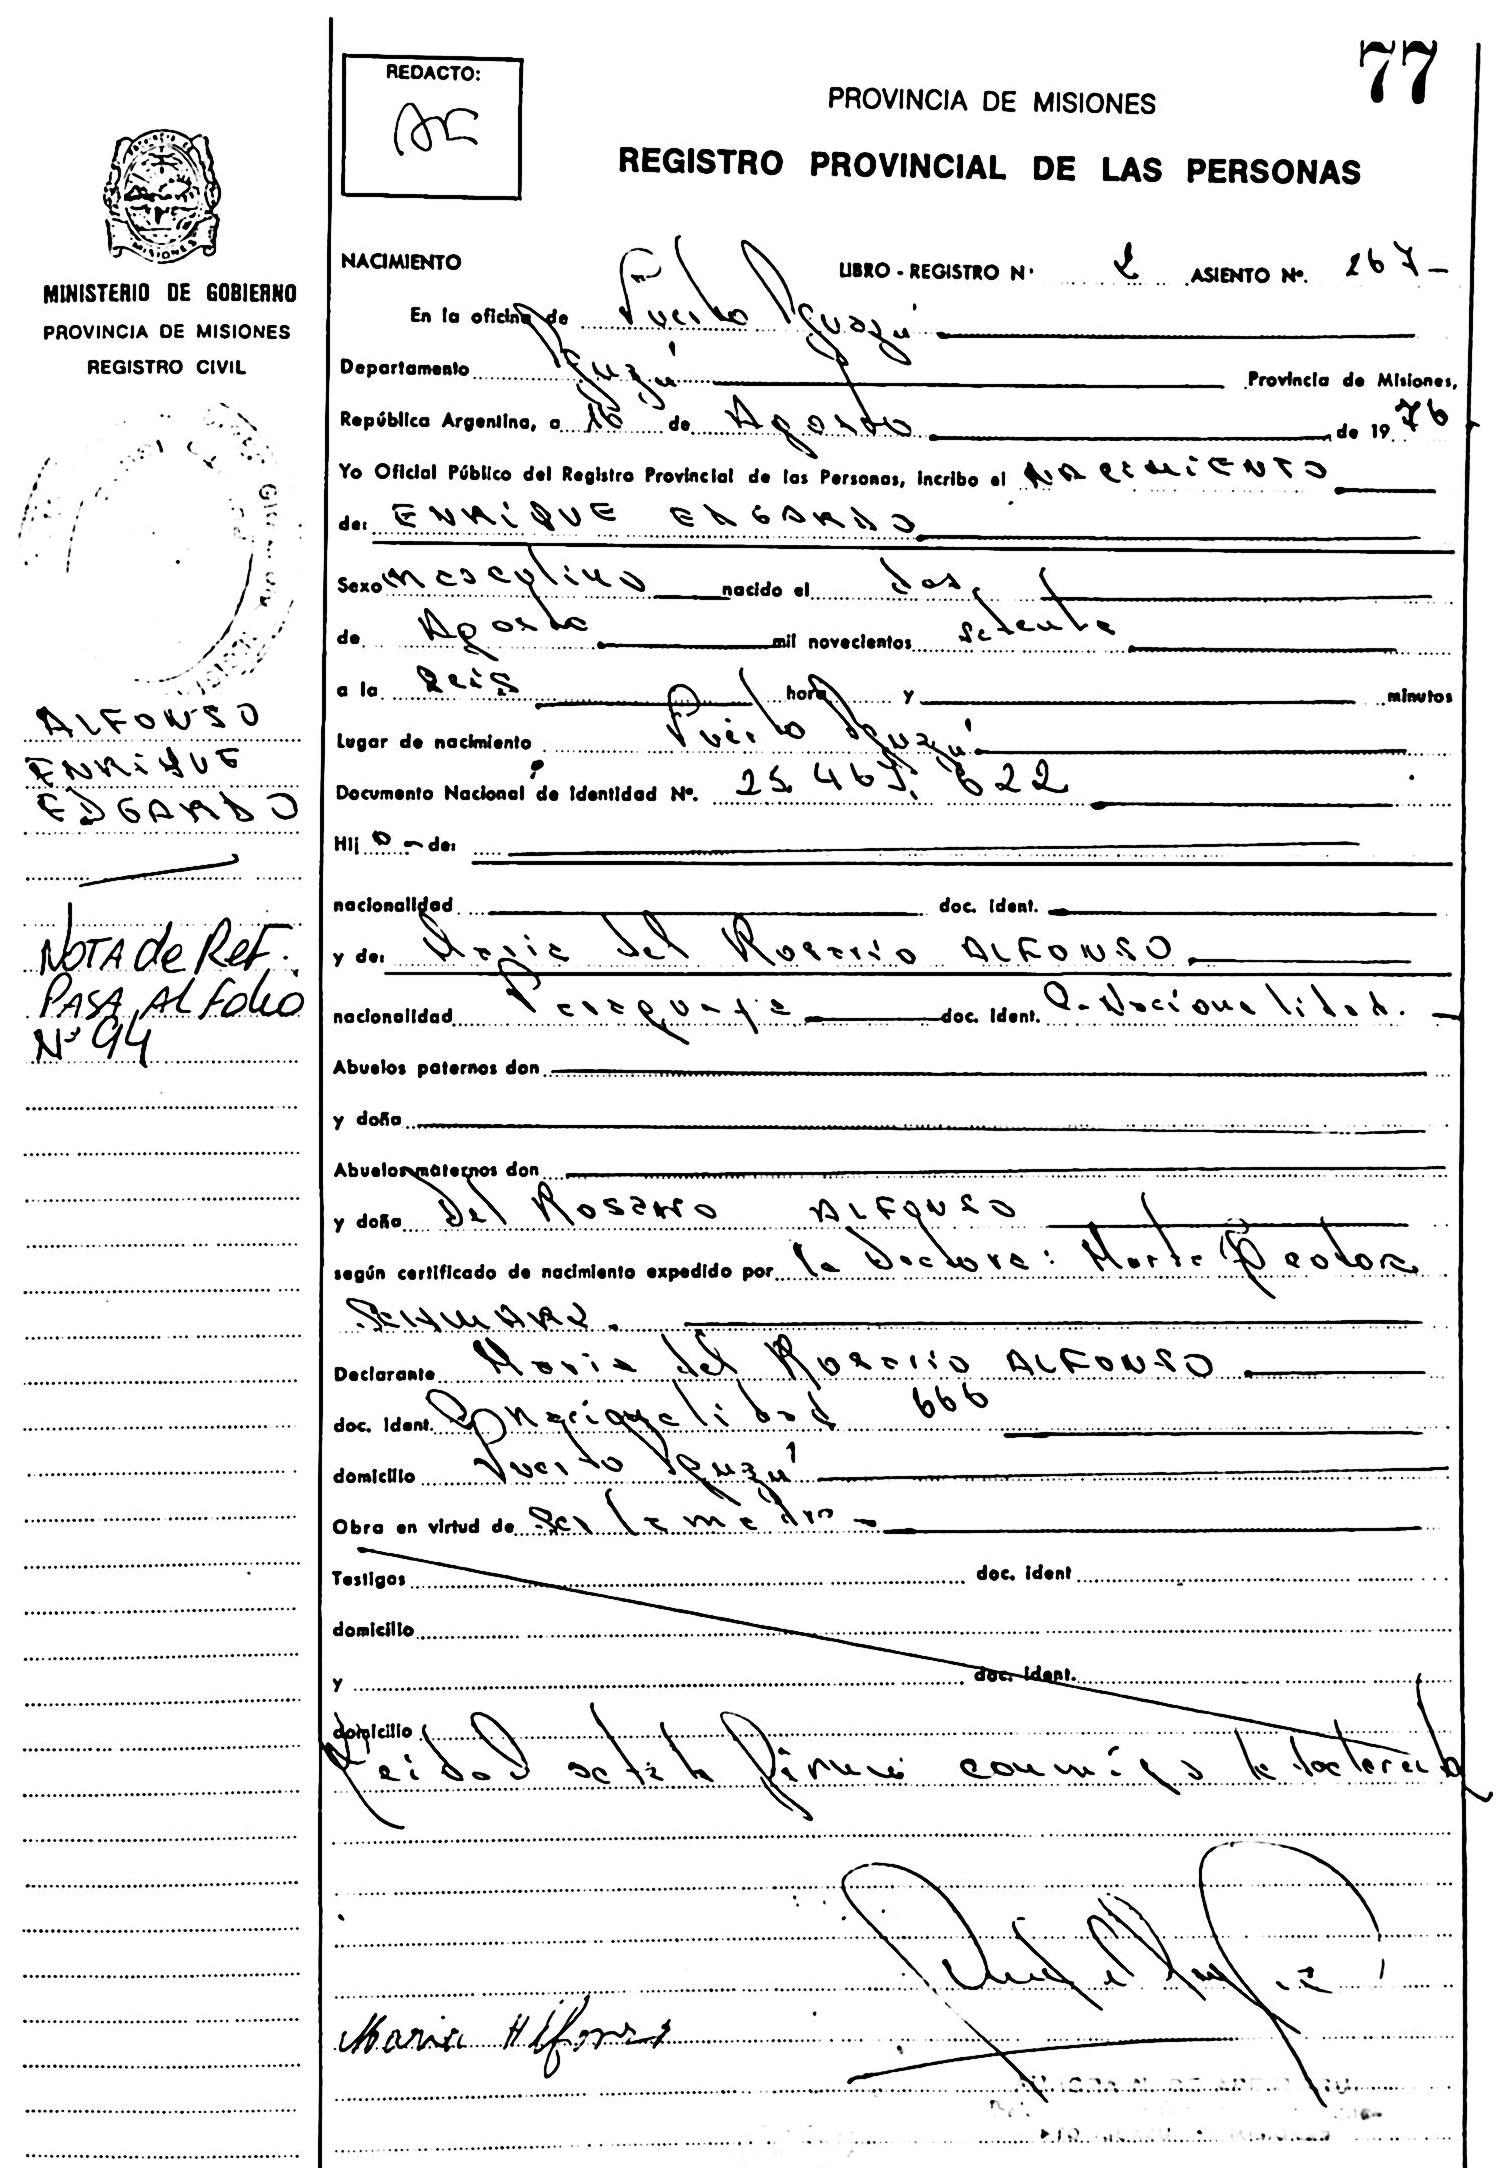 77
REDACTO:
PROVINCIA DE MISIONES
REGISTRO PROVINCIAL DE LAS PERSONAS
MINISTERIO DE GOBIERNO
PROVINCIA DE MISIONES
REGISTRO CIVIL
ALFONSO
ENRIQUE
EDGARDO
NOTA de ReF.
PASA AL Folio
Nº 94
NACIMIENTO LIBRO - REGISTRO Nº 2 ASIENTO Nº. 267-
En la oficina de Puerto Iguazú
Departamento Iguazú Provincia de Misiones,
República Argentina, a 16 de Agosto de 1976
Yo Oficial Público del Registro Provincial de las Personas, incribo el NACIMIENTO
de: ENRIQUE EDGARDO
Sexo masculino nacido el dos
de Agosto mil novecientos setenta
a la seis hora y minutos
Lugar de nacimiento Puerto Iguazú
Documento Nacional de Identidad Nº. 622
Hijo - de:
nacionalidad doc. ident.
y de: Maria del Rosario ALFONSO
nacionalidad Paraguaya doc. ident. C. Nacionalidad.
Abuelos paternos don
y doña
Abuelos maternos don
y doña Del Rosario ALFONSO
según certificado de nacimiento expedido por la Doctora: Marta
Declarante Maria del Rosario ALFONSO
doc. ident. C. nacionalidad 666
domicilio Puerto Iguazú
Obra en virtud de ser la madre -
Testigos doc. ident
domicilio
y doc. ident.
domicilio
Leida el acta la firma conmigo la
Maria Alfonso